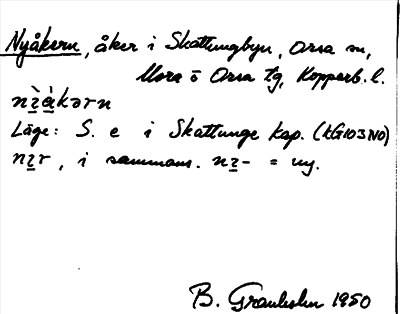 Nyåkern, åker i Skattungbyn, Orsa sn,
Mora o Orsa tg, Kopparb. l.
Läge: S. e i Skattunge kap. (kG103NO)
i sammans. = ny.
B. 1950